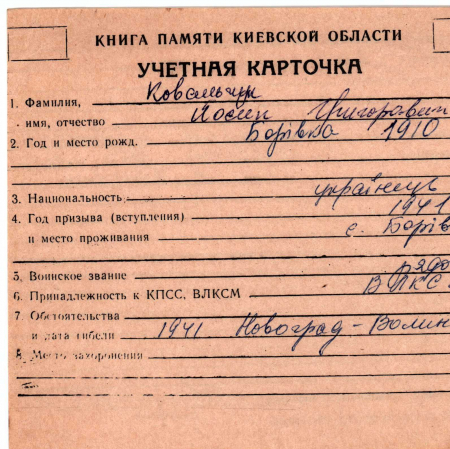 КНИГА ПАМЯТИ КИЕВСКОЙ ОБЛАСТИ
УЧЕТНАЯ КАРТОЧКА
1. Фамилия, Ковальчук
имя, отчество Йосип Григорович
2. Год и место рожд. Борівка 1910
3. Национальность українець
4. Год призыва (вступления) 1941
и место проживания с. Борів
5. Воинское звание рядо
6. Принадлежность к КПСС, ВЛКСМ ВЛКС
7. Обстоятельства
и дата гибели 1941 Новоград-Волин
8. Место захоронения